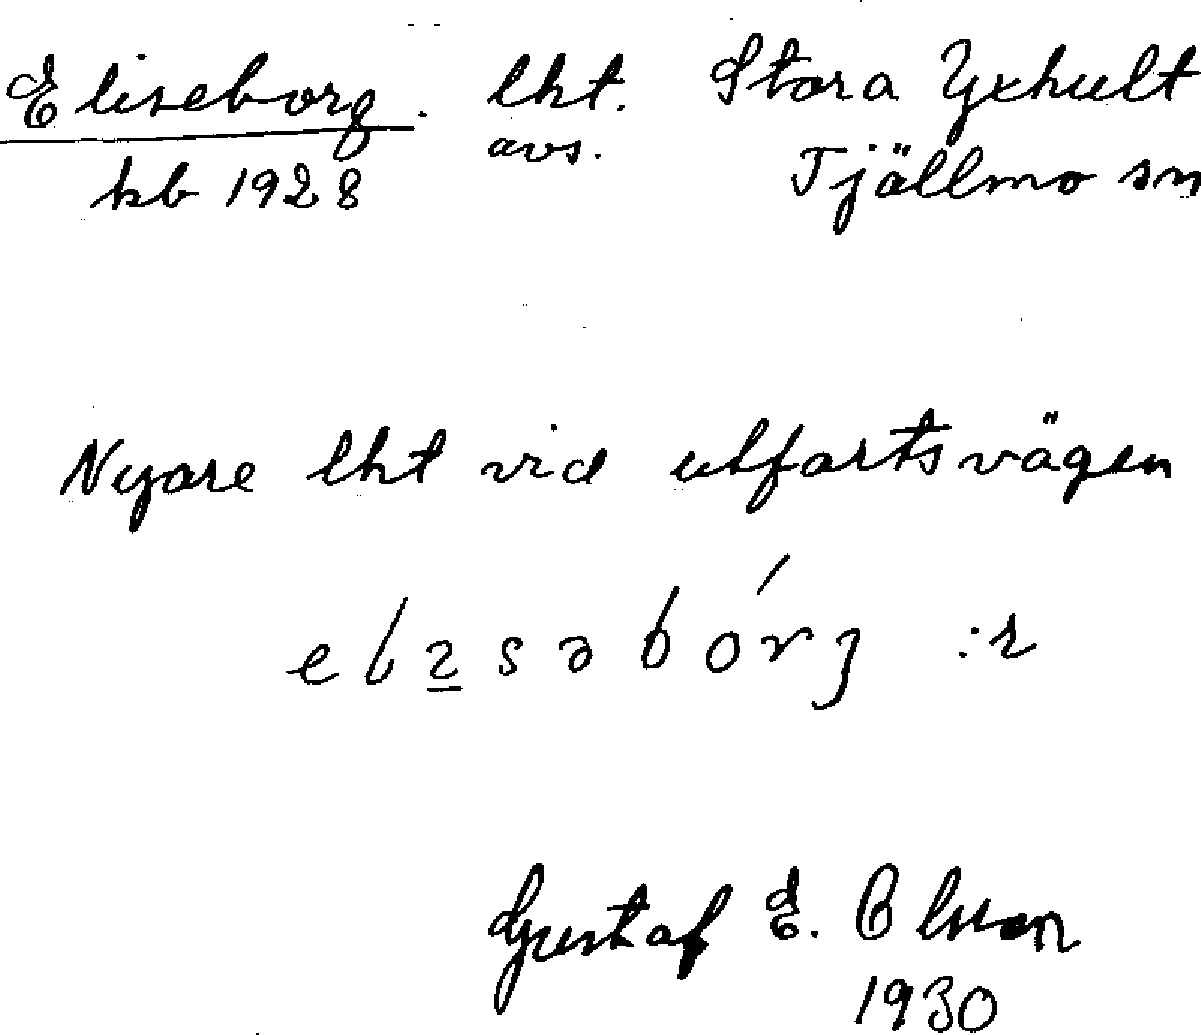 Eliseborg. lht. Stora Yxhult
kb 1928 avs. Tjällmo sn
Nyare lht vid utfartsvägen
Gustaf E. Olsson
1930